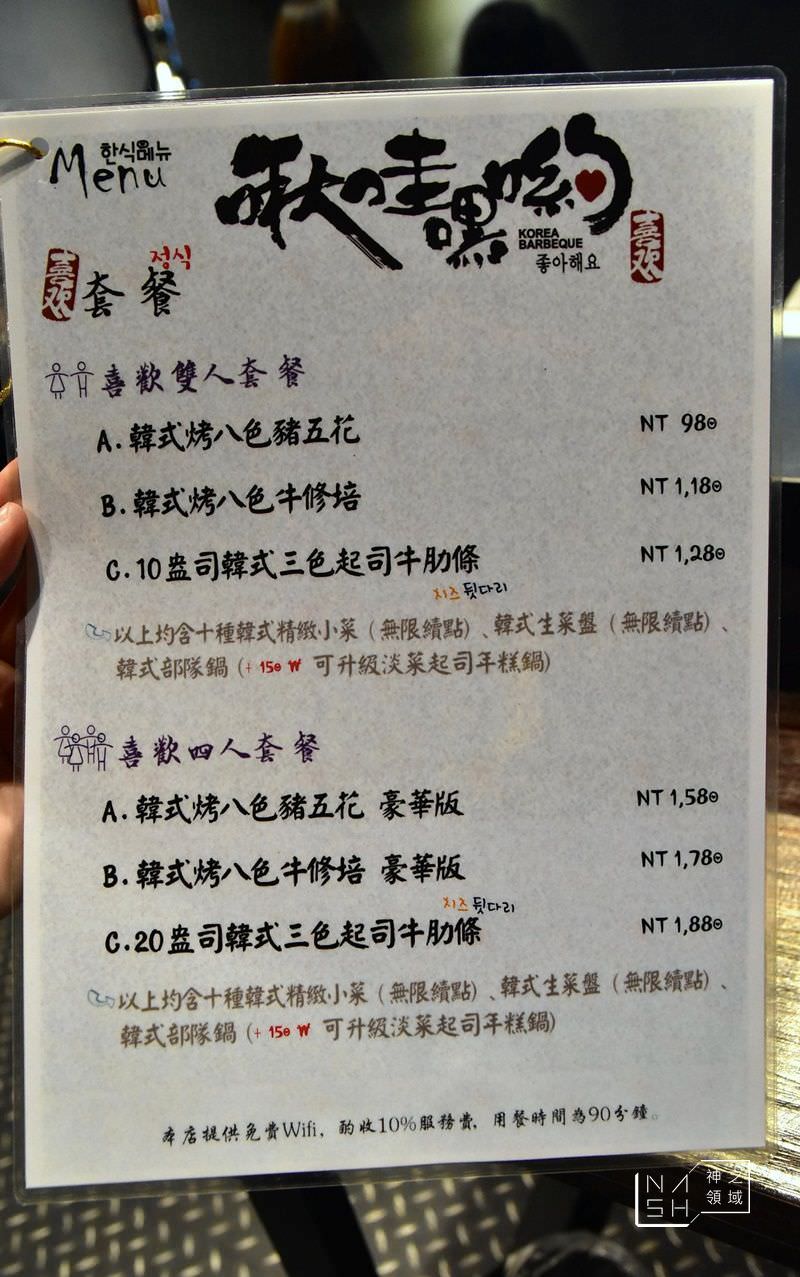 한식메뉴
Menu
啾哇嘿喲
KOREA
BARBEQUE
좋아해요
喜欢
喜欢
정식
套餐
喜歡雙人套餐
A.韓式烤八色豬五花 NT 980
B.韓式烤八色牛修培 NT 1,180
C.10盎司韓式三色起司牛肋條 NT 1,280
치즈 뒷다리
以上均含十種韓式精緻小菜(無限續點)、韓式生菜盤(無限續點)、
韓式部隊鍋(+150₩ 可升級淡菜起司年糕鍋)
喜歡四人套餐
A.韓式烤八色豬五花 豪華版 NT 1,580
B.韓式烤八色牛修培 豪華版 NT 1,780
치즈 뒷다리
C.20盎司韓式三色起司牛肋條 NT 1,880
以上均含十種韓式精緻小菜(無限續點)、韓式生菜盤(無限續點)、
韓式部隊鍋(+150₩ 可升級淡菜起司年糕鍋)
本店提供免費Wifi，酌收10%服務費，用餐時間為90分鐘。
NASH
神之領域